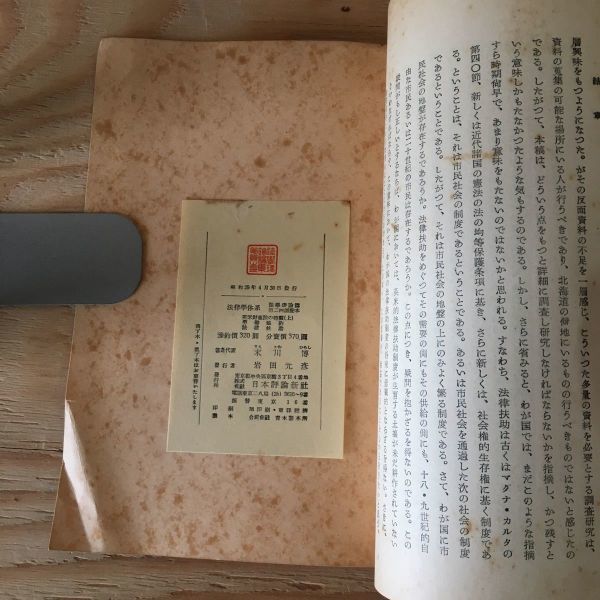 結章
層興味をもつようになつた。がその反面資料の不足を一層感じ、こういつた多量の資料を必要とする調査研究は、
資料の蒐集の可能な場所にいる人が行うべきであり、北海道の僻地にいるものの行うべきものではないと感じたの
である。したがつて、本稿は、どういう点をもつと詳細に調査し研究しなければならないかを指摘し、かつ残すと
いう意味しかもたなかつたような気もするのである。しかし、さらに省みると、わが国では、まだこのような指摘
すら時期尚早で、あまり意味をもたないのではないかと思われる。すなわち、法律扶助は古くはマグナ・カルタの
第四〇節、新しくは近代諸国の憲法の法の均等保護条項に基き、さらに新しくは、社会権的生存権に基く制度であ
る。ということは、それは市民社会の制度であるということである。あるいは市民社会を通過した次の社会の制度
であるということである。したがつて、それは市民社会の地盤の上にのみよく繁る制度である。さて、わが国に市
民社会の地盤が存在するであろうか。法律扶助をめぐつてその需要の側にもその供給の側にも、十八・九世紀的自
由な市民あるいは二十世紀の市民は存在するであろうか。この点につき、疑問を抱かざるを得ないのである。この
昭和35年4月30日発行
法律學体系
豫約價 320圓 分賣價 370圓
著者代表 末川博
發行者 岩田元彦
東京都中央区京橋3丁目4番地
發行所 株式会社 日本評論新社
振替東京16番
印刷
製本 合同会社 青木製本所
落丁本・乱丁本はお取替いたします